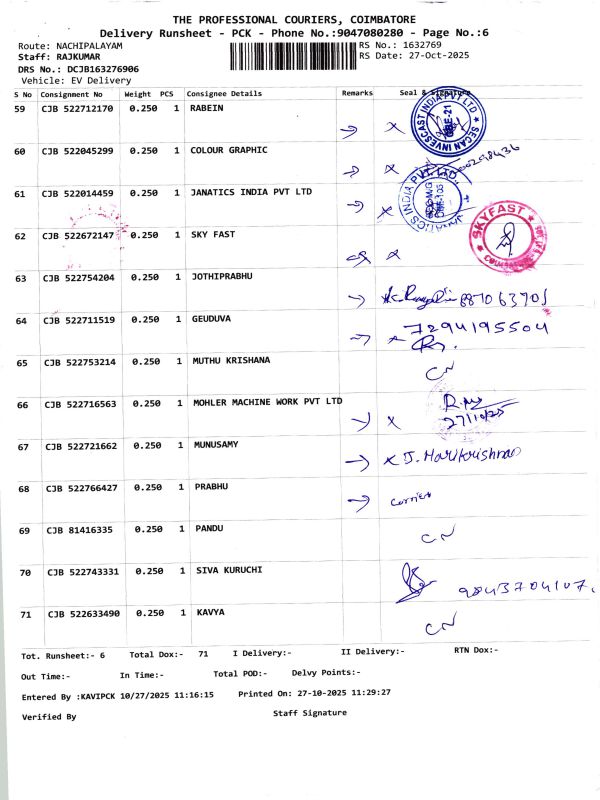 THE PROFESSIONAL COURIERS, COIMBATORE
Delivery Runsheet - PCK - Phone No.:9047080280 - Page No.:6
Route: NACHIPALAYAM
RS No.: 1632769
Staff: RAJKUMAR
RS Date: 27-Oct-2025
DRS No.: DCJB163276906
Vehicle: EV Delivery
S No Consignment No Weight PCS Consignee Details Remarks Seal & Signature
59 CJB 522712170 0.250 1 RABEIN x
SECAN INVESCAST INDIA PVT LTD
60 CJB 522045299 0.250 1 COLOUR GRAPHIC x
61 CJB 522014459 0.250 1 JANATICS INDIA PVT LTD x
JANATICS INDIA PVT. LTD.
62 CJB 522672147 0.250 1 SKY FAST x
SKYFAST
63 CJB 522754204 0.250 1 JOTHIPRABHU 887063701
64 CJB 522711519 0.250 1 GEUDUVA x 7294195504
65 CJB 522753214 0.250 1 MUTHU KRISHANA CN
66 CJB 522716563 0.250 1 MOHLER MACHINE WORK PVT LTD x
27/10/25
67 CJB 522721662 0.250 1 MUNUSAMY x J. Harikrishnan
68 CJB 522766427 0.250 1 PRABHU
69 CJB 81416335 0.250 1 PANDU CN
70 CJB 522743331 0.250 1 SIVA KURUCHI 9843704107.
71 CJB 522633490 0.250 1 KAVYA CN
Tot. Runsheet:- 6 Total Dox:- 71 I Delivery:- II Delivery:- RTN Dox:-
Out Time:- In Time:- Total POD:- Delvy Points:-
Entered By :KAVIPCK 10/27/2025 11:16:15 Printed On: 27-10-2025 11:29:27
Verified By Staff Signature